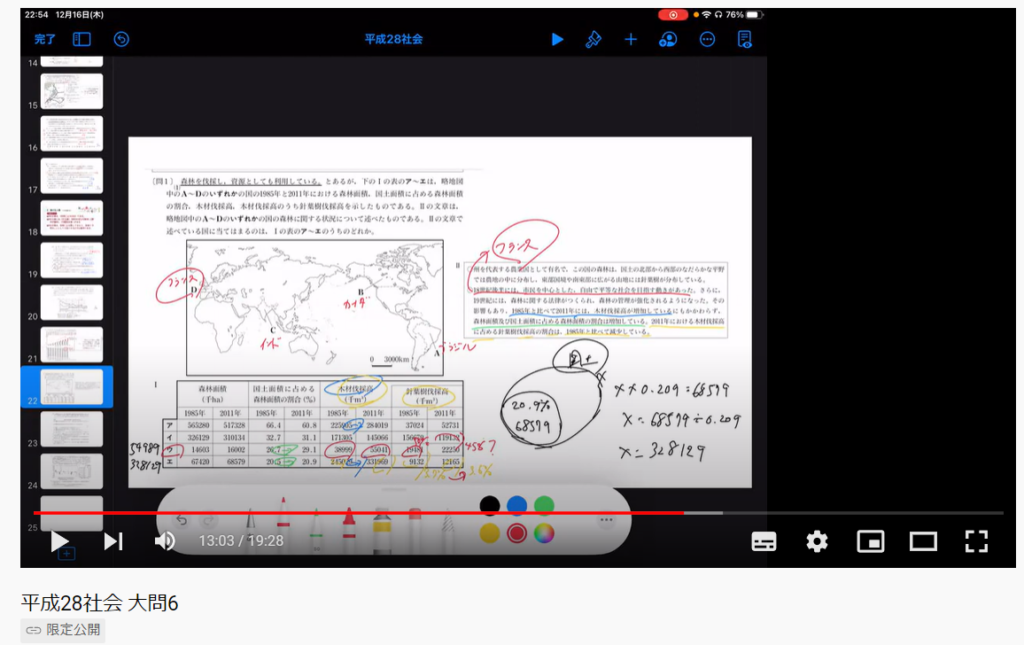 22:54 12月16日(木)
76%
完了
平成28社会
14
15
16
17
18
19
20
21
22
23
24
25
〔問1〕 森林を伐採し,資源としても利用している。とあるが,下のⅠの表のア〜エは,略地図
中のA〜Dのいずれかの国の1985年と2011年における森林面積,国土面積に占める森林面積
の割合,木材伐採高,木材伐採高のうち針葉樹伐採高を示したものである。Ⅱの文章は,
略地図中のA〜Dのいずれかの国の森林に関する状況について述べたものである。Ⅱの文章で
述べている国に当てはまるのは,Ⅰの表のア〜エのうちのどれか。
フランス
フランス
D
B
カナダ
C
インド
A
ブラジル
0 3000km
Ⅱ
州を代表する農業国として有名で,この国の森林は,国土の北部から西部のなだらかな平野
では農地の中に分布し,東部国境や南東部に広がる山地には針葉樹が分布している。
18世紀後半には,市民を中心とした,自由で平等な社会を目指す動きがあった。さらに,
19世紀には,森林に関する法律がつくられ,森林の管理が強化されるようになった。その
影響もあり,1985年と比べて2011年には,木材伐採高が増加しているにもかかわらず,
森林面積及び国土面積に占める森林面積の割合は増加している。2011年における木材伐採高
に占める針葉樹伐採高の割合は,1985年と比べて減少している。
Ⅰ
森林面積 国土面積に占める 木材伐採高 針葉樹伐採高
(千ha) 森林面積の割合(%) (千m³) (千m³)
1985年 2011年 1985年 2011年 1985年 2011年 1985年 2011年
ア 565280 517328 66.4 60.8 284019 37024 52731
イ 326129 310134 32.7 31.1 171305 145066
14603 16002 26.7 29.1 38999 55041 22250
エ 67420 68579 20.5 20.9 331969 9132 12165
54989
328129
20.9%
68579
x×0.209=68579
x=68579÷0.209
x=328129
13:03 / 19:28
平成28社会 大問6
限定公開